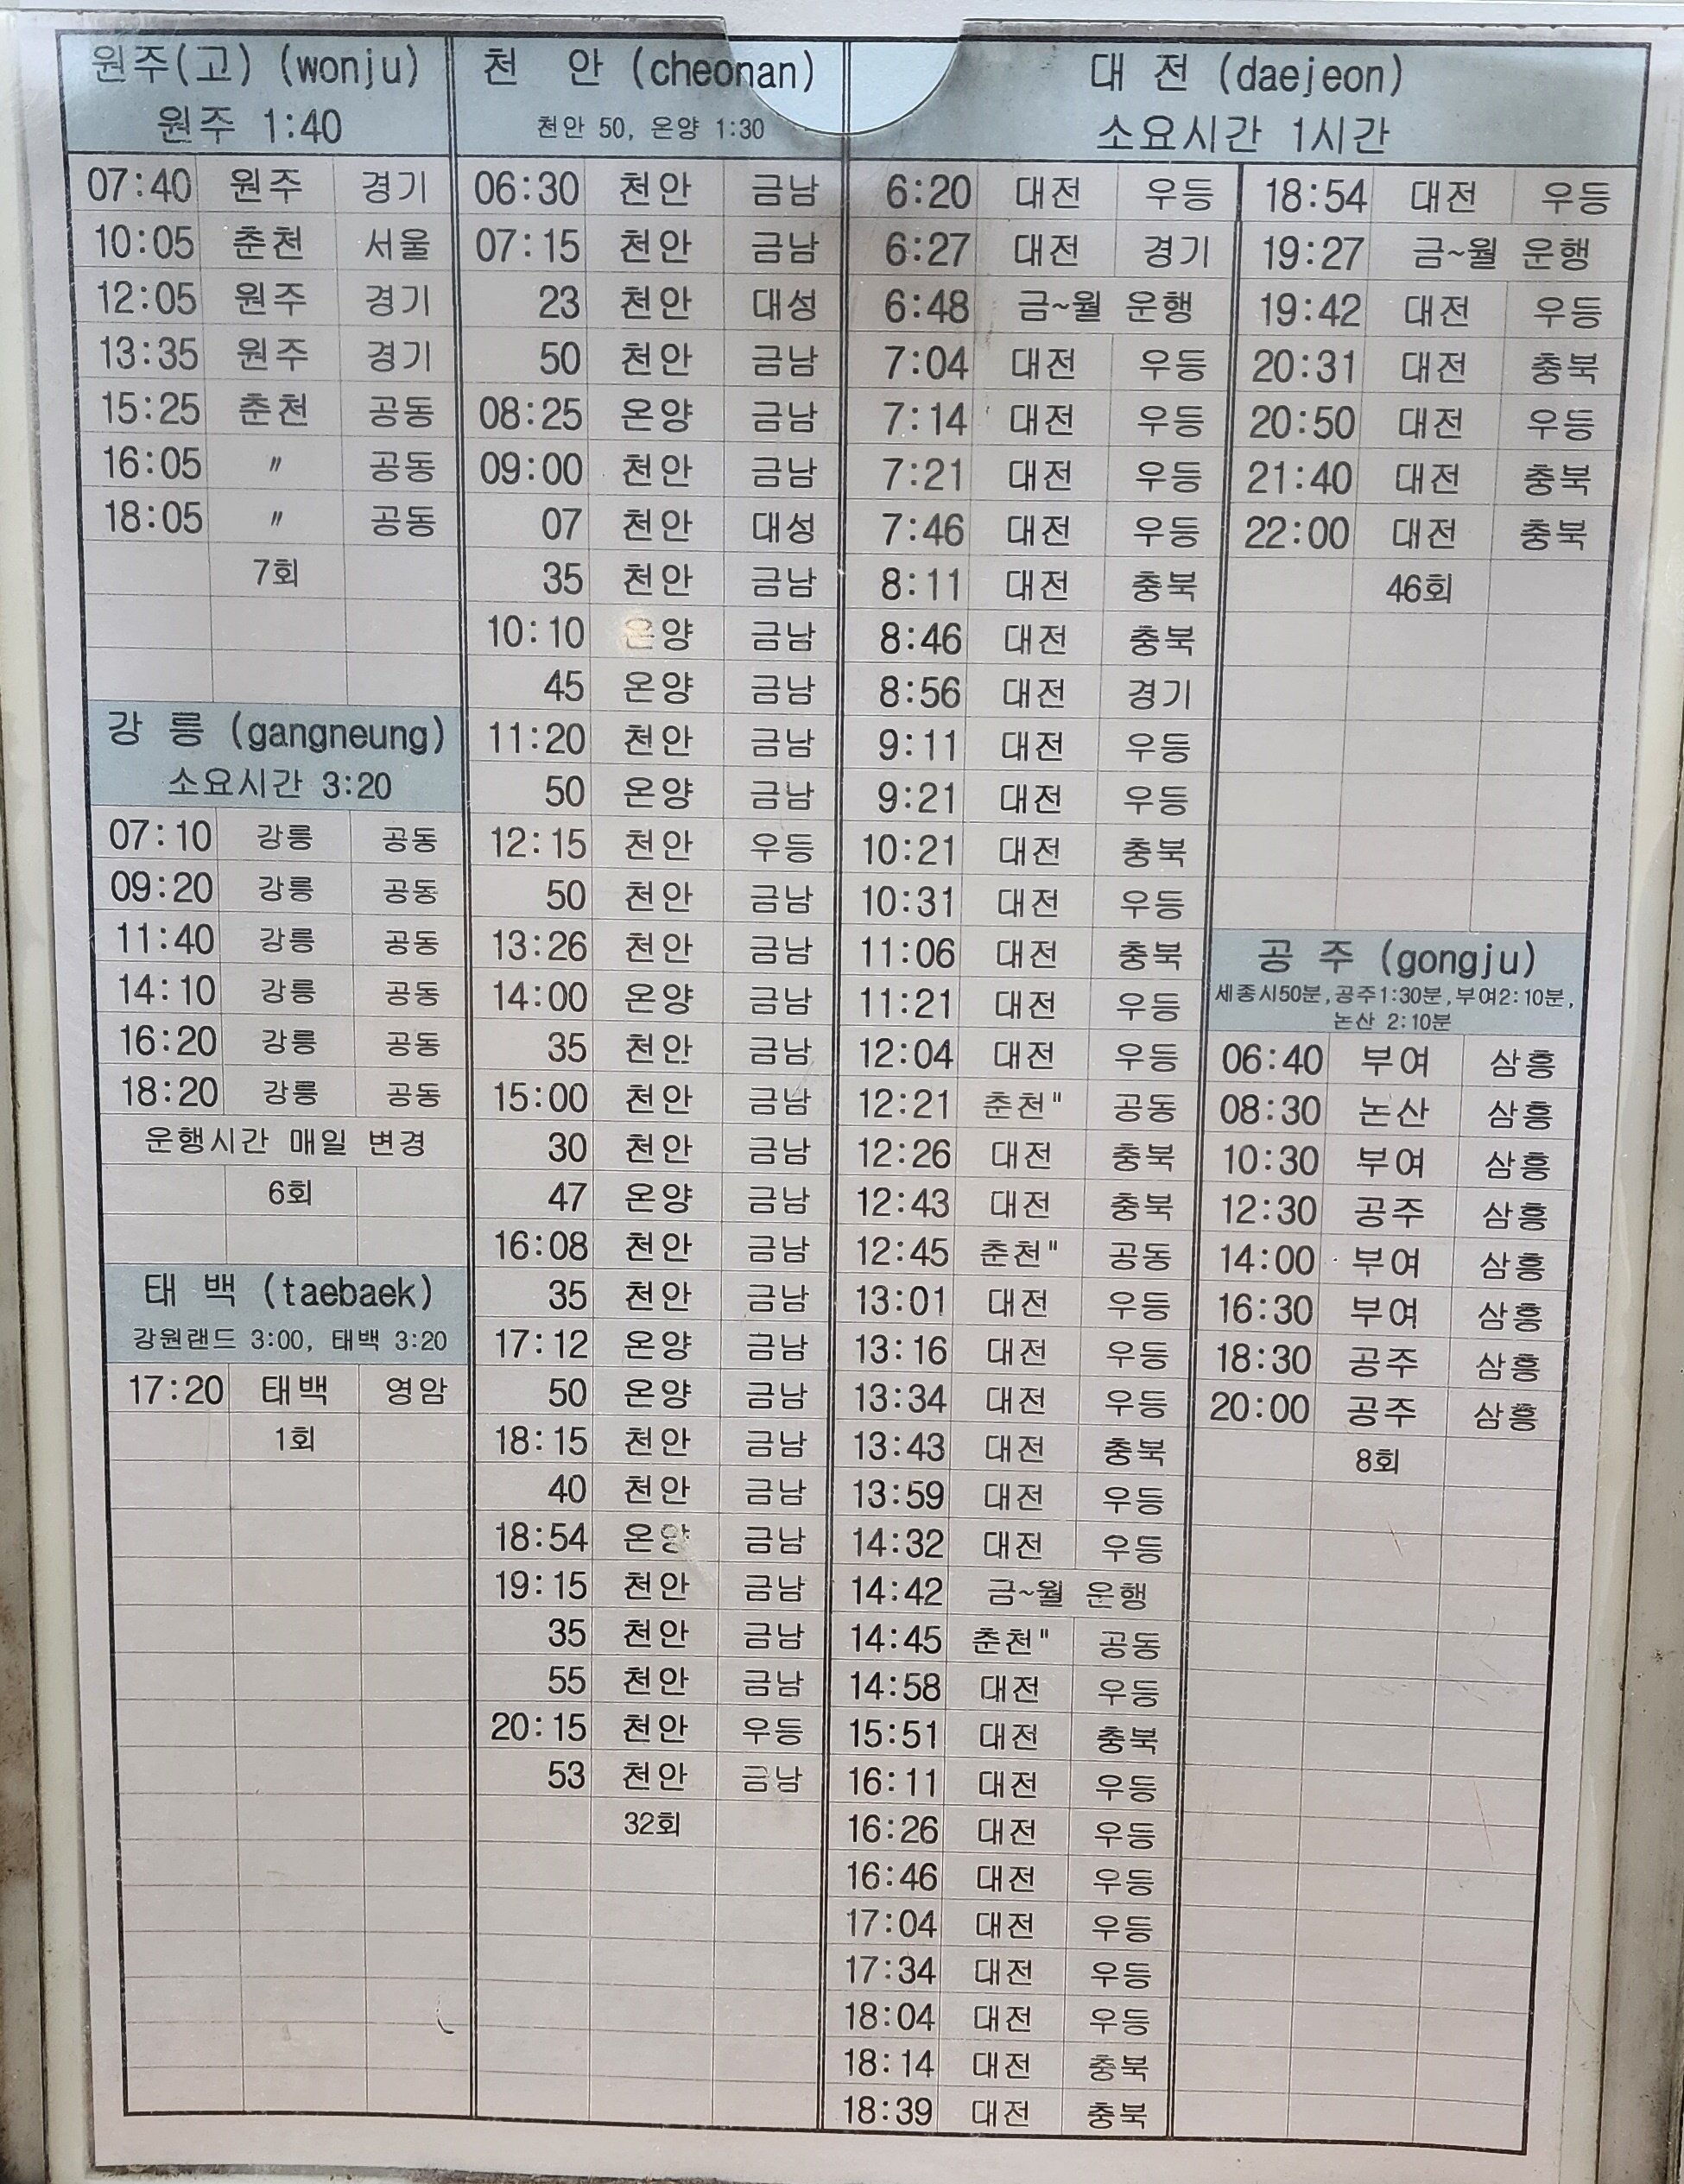 원주(고) (wonju)
원주 1:40
07:40 원주 경기
10:05 춘천 서울
12:05 원주 경기
13:35 원주 경기
15:25 춘천 공동
16:05 〃 공동
18:05 〃 공동
7회
강 릉 (gangneung)
소요시간 3:20
07:10 강릉 공동
09:20 강릉 공동
11:40 강릉 공동
14:10 강릉 공동
16:20 강릉 공동
18:20 강릉 공동
운행시간 매일 변경
6회
태 백 (taebaek)
강원랜드 3:00, 태백 3:20
17:20 태백 영암
1회
천 안 (cheonan)
천안 50, 온양 1:30
06:30 천안 금남
07:15 천안 금남
23 천안 대성
50 천안 금남
08:25 온양 금남
09:00 천안 금남
07 천안 대성
35 천안 금남
10:10 온양 금남
45 온양 금남
11:20 천안 금남
50 온양 금남
12:15 천안 우등
50 천안 금남
13:26 천안 금남
14:00 온양 금남
35 천안 금남
15:00 천안 금남
30 천안 금남
47 온양 금남
16:08 천안 금남
35 천안 금남
17:12 온양 금남
50 온양 금남
18:15 천안 금남
40 천안 금남
18:54 온양 금남
19:15 천안 금남
35 천안 금남
55 천안 금남
20:15 천안 우등
53 천안 금남
32회
대 전 (daejeon)
소요시간 1시간
6:20 대전 우등
6:27 대전 경기
6:48 금~월 운행
7:04 대전 우등
7:14 대전 우등
7:21 대전 우등
7:46 대전 우등
8:11 대전 충북
8:46 대전 충북
8:56 대전 경기
9:11 대전 우등
9:21 대전 우등
10:21 대전 충북
10:31 대전 우등
11:06 대전 충북
11:21 대전 우등
12:04 대전 우등
12:21 춘천" 공동
12:26 대전 충북
12:43 대전 충북
12:45 춘천" 공동
13:01 대전 우등
13:16 대전 우등
13:34 대전 우등
13:43 대전 충북
13:59 대전 우등
14:32 대전 우등
14:42 금~월 운행
14:45 춘천" 공동
14:58 대전 우등
15:51 대전 충북
16:11 대전 우등
16:26 대전 우등
16:46 대전 우등
17:04 대전 우등
17:34 대전 우등
18:04 대전 우등
18:14 대전 충북
18:39 대전 충북
18:54 대전 우등
19:27 금~월 운행
19:42 대전 우등
20:31 대전 충북
20:50 대전 우등
21:40 대전 충북
22:00 대전 충북
46회
공 주 (gongju)
세종시50분,공주1:30분,부여2:10분,
논산 2:10분
06:40 부여 삼흥
08:30 논산 삼흥
10:30 부여 삼흥
12:30 공주 삼흥
14:00 부여 삼흥
16:30 부여 삼흥
18:30 공주 삼흥
20:00 공주 삼흥
8회